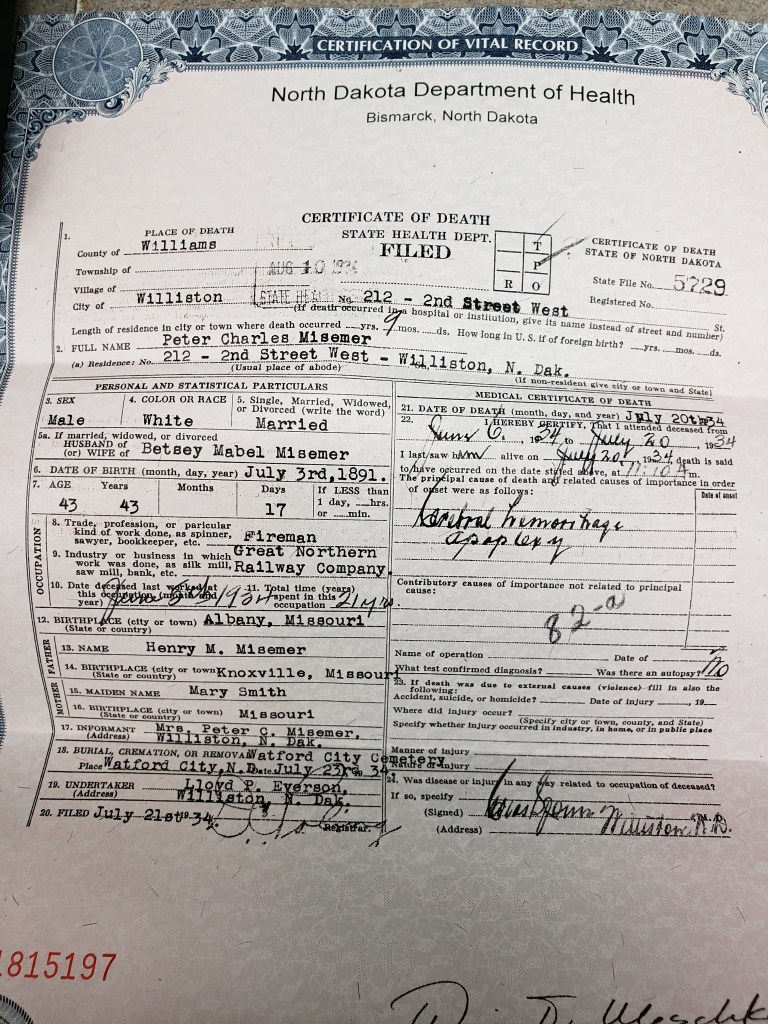 CERTIFICATION OF VITAL RECORD
North Dakota Department of Health
Bismarck, North Dakota
CERTIFICATE OF DEATH
1. PLACE OF DEATH
County of Williams
Township of
Village of
City of Williston
STATE HEALTH DEPT.
FILED
AUG 10 1934
STATE HEALTH
T
P
R O
CERTIFICATE OF DEATH
STATE OF NORTH DAKOTA
State File No. 5729
Registered No.
No. 212 - 2nd Street West St.
(If death occurred in a hospital or institution, give its name instead of street and number)
Length of residence in city or town where death occurred yrs. 9 mos. ds. How long in U.S. if of foreign birth? yrs. mos. ds.
2. FULL NAME Peter Charles Misemer
(a) Residence: No. 212 - 2nd Street West - Williston, N. Dak.
(Usual place of abode) (If non-resident give city or town and State)
PERSONAL AND STATISTICAL PARTICULARS
3. SEX 4. COLOR OR RACE 5. Single, Married, Widowed, or Divorced (write the word)
Male White Married
5a. If married, widowed, or divorced
HUSBAND of
(or) WIFE of Betsey Mabel Misemer
6. DATE OF BIRTH (month, day, year) July 3rd,1891.
7. AGE Years Months Days If LESS than
43 43 17 1 day, hrs.
or min.
OCCUPATION
8. Trade, profession, or paricular
kind of work done, as spinner,
sawyer, bookkeeper, etc. Fireman
9. Industry or business in which
work was done, as silk mill,
saw mill, bank, etc. Great Northern
Railway Company.
10. Date deceased last worked at
this occupation (month and
year) June 5th 1934
11. Total time (years)
spent in this
occupation 21 yrs.
12. BIRTHPLACE (city or town) Albany, Missouri
(State or country)
FATHER
13. NAME Henry M. Misemer
14. BIRTHPLACE (city or town Knoxville, Missouri
(State or country)
MOTHER
15. MAIDEN NAME Mary Smith
16. BIRTHPLACE (city or town) Missouri
(State or country)
17. INFORMANT Mrs. Peter C. Misemer,
(Address) Williston, N. Dak.
18. BURIAL, CREMATION, OR REMOVAL Watford City Cemetery
Place Watford City,N.D. Date July 23rd 34.
19. UNDERTAKER Lloyd P. Everson,
(Address) Williston, N. Dak.
20. FILED July 21st 19 34.
Registrar.
MEDICAL CERTIFICATE OF DEATH
21. DATE OF DEATH (month, day, and year) July 20th 34
22. I HEREBY CERTIFY, That I attended deceased from
June 6, 34 to July 20, 1934
I last saw him alive on July 20, 1934, death is said
to have occurred on the date stated above, at 7:10 A m.
The principal cause of death and related causes of importance in order
of onset were as follows:
Date of onset
Cerebral hemorrhage
apoplexy
Contributory causes of importance not related to principal
cause:
82-a
Name of operation Date of
What test confirmed diagnosis? Was there an autopsy? No
23. If death was due to external causes (violence) fill in also the
following:
Accident, suicide, or homicide? Date of injury , 19
Where did injury occur?
(Specify city or town, county, and State)
Specify whether injury occurred in industry, in home, or in public place
Manner of injury
Nature of injury
24. Was disease or injury in any way related to occupation of deceased?
If so, specify
(Signed) M. D.
(Address) Williston, N.D.
1815197